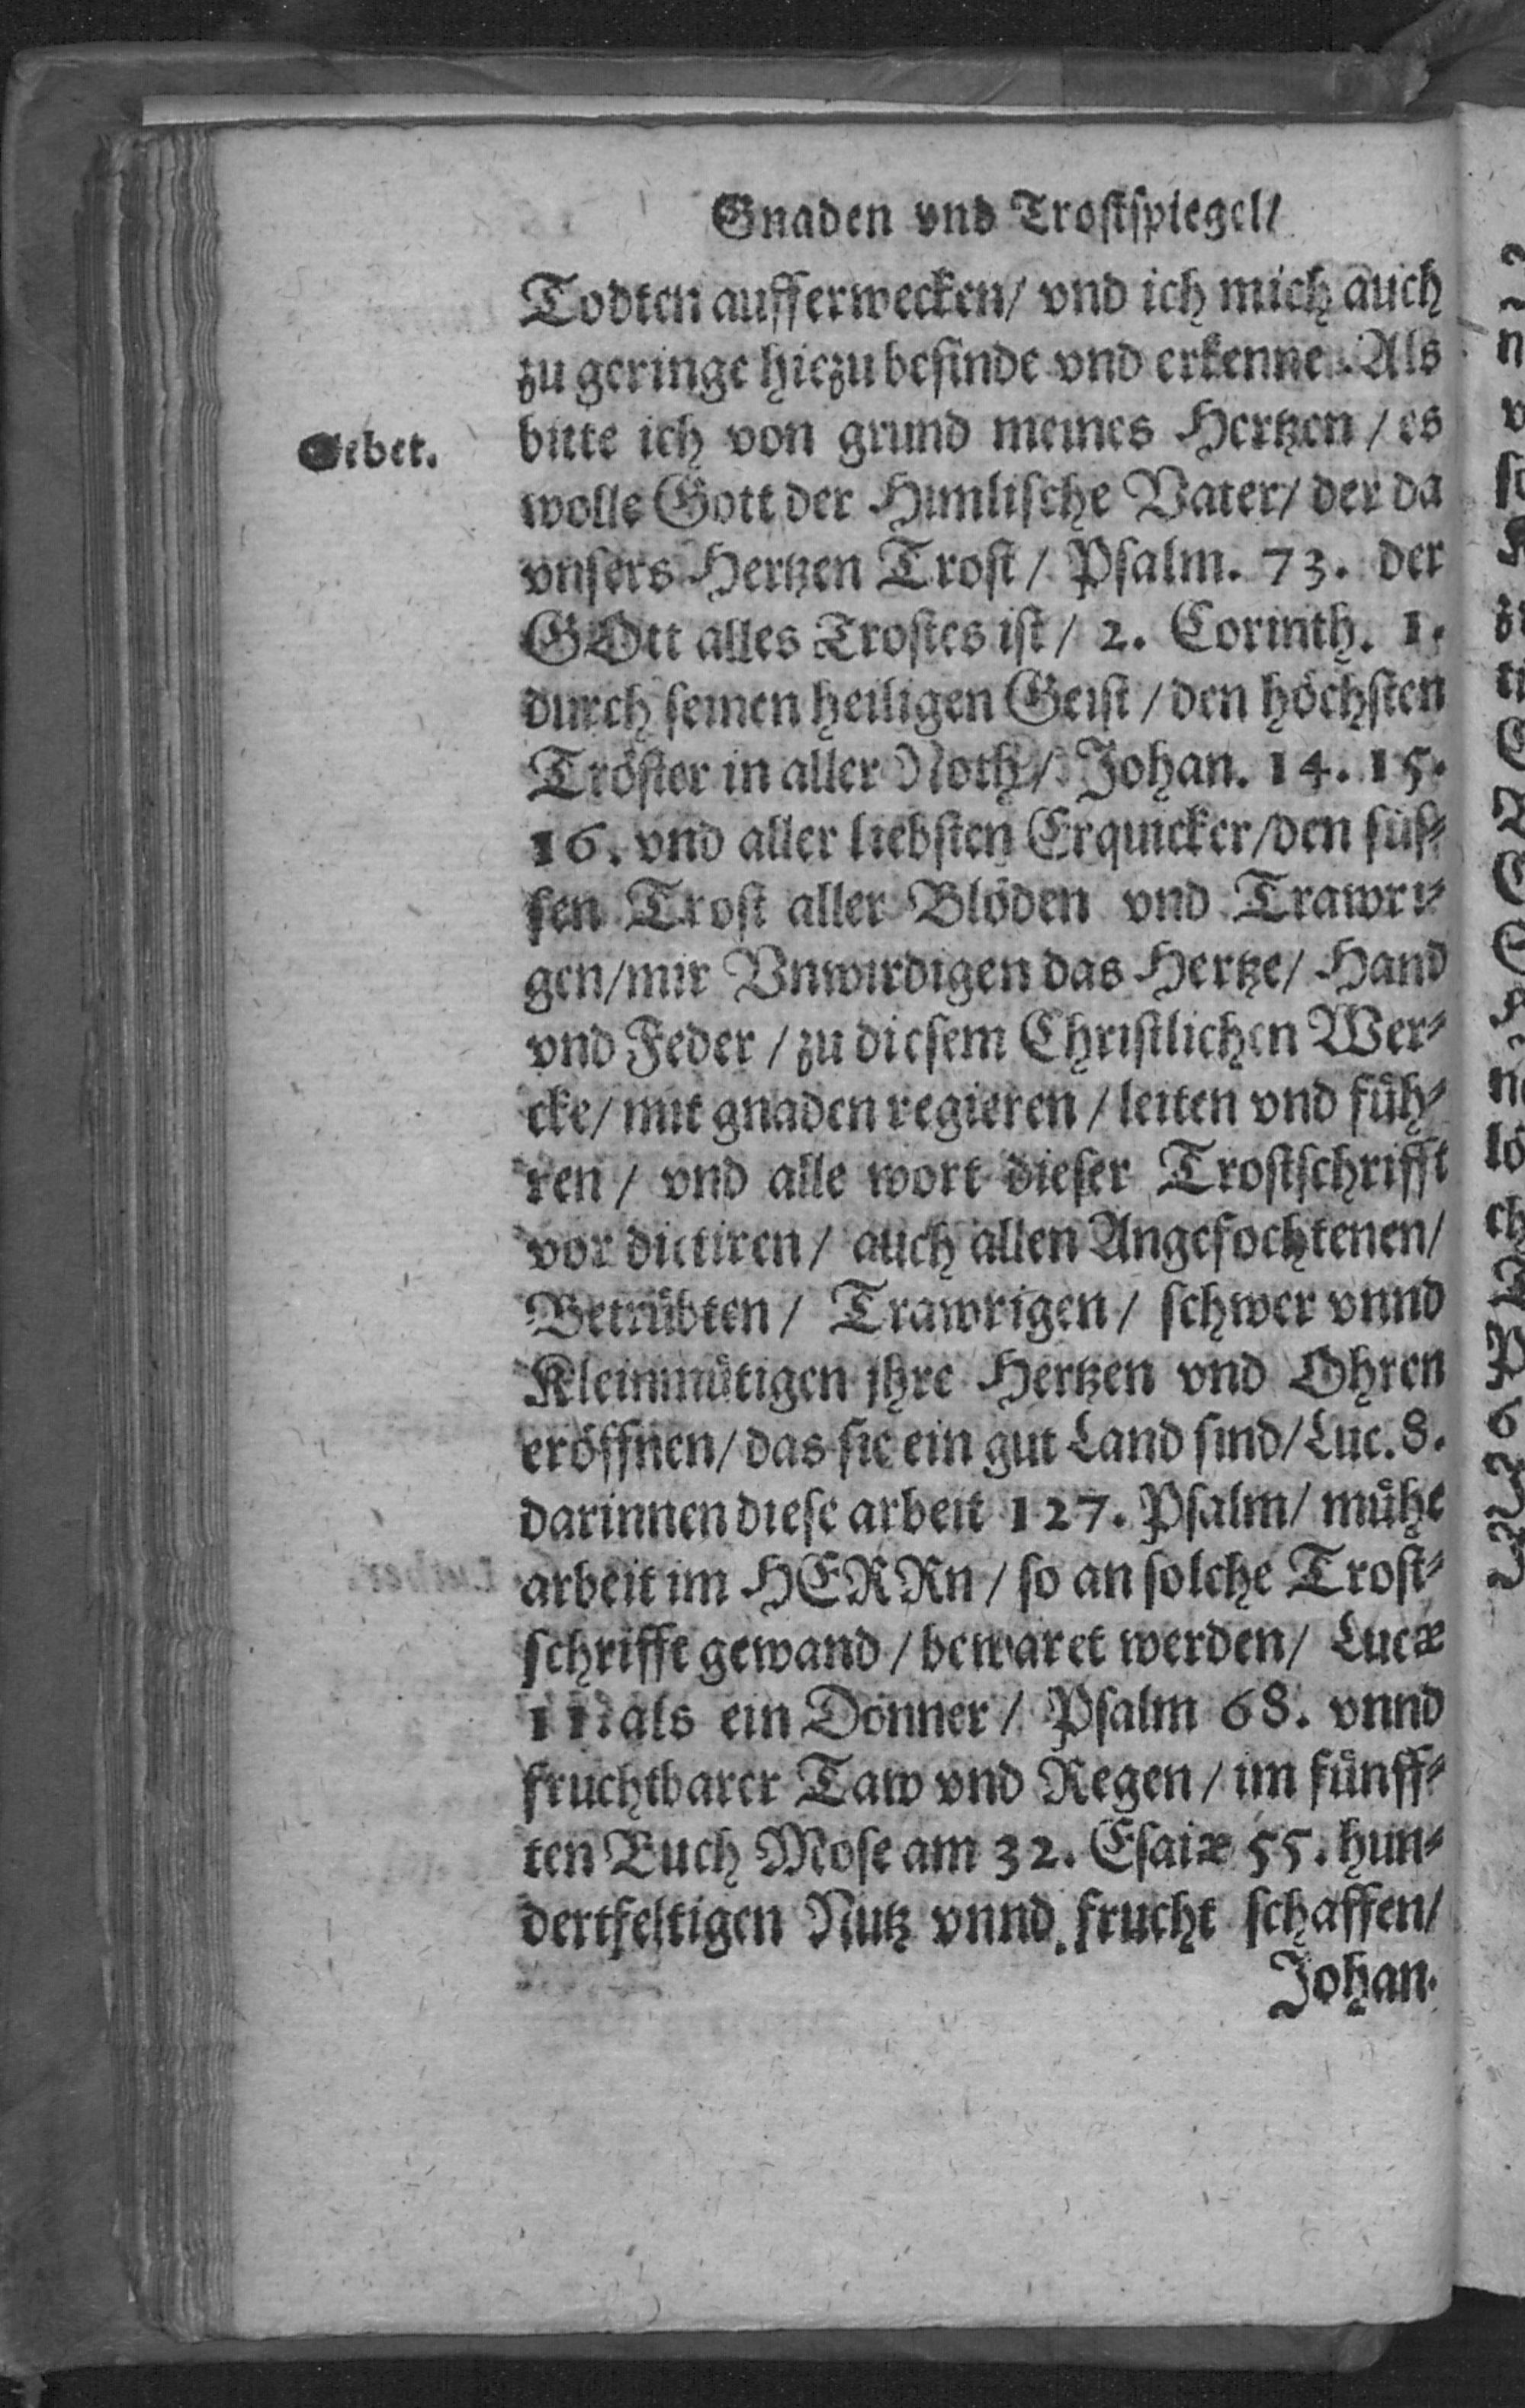 Gnaden vnd Trostspiegel/
Todten aufferwecken/ vnd ich mich auch
zu geringe hiezu befinde vnd erkenne. Als
Gebet.
bitte ich von grund meines Hertzen / es
wolle Gott der Himlische Vater/ der da
vnsers Hertzen Trost / Psalm. 73. der
GOtt alles Trostes ist / 2. Corinth. 1.
durch seinen heiligen Geist / den höchsten
Tröster in aller Noth / Johan. 14. 15.
16. vnd aller liebsten Erquicker/den süs-
sen Trost aller Blöden vnd Trawri-
gen/mir Vnwirdigen das Hertze/ Hand
vnd Feder / zu diesem Christlichen Wer-
cke/ mit gnaden regieren / leiten vnd füh-
ren / vnd alle wort dieser Trostschrifft
vor dictiren / auch allen Angefochtenen/
Betrübten / Trawrigen / schwer vnnd
Kleinmütigen jhre Hertzen vnd Ohren
eröffnen/ das sie ein gut Land sind/Luc. 8.
darinnen diese arbeit 127. Psalm/ mühe
arbeit im HERRn / so an solche Trost-
schrifft gewand / bewaret werden/ Lucæ
als ein Donner / Psalm 68. vnnd
fruchtbarer Taw vnd Regen / im fünff-
ten Buch Mose am 32. Esaiæ 55. hun-
dertfeltigen Nutz vnnd frucht schaffen/
Johan.